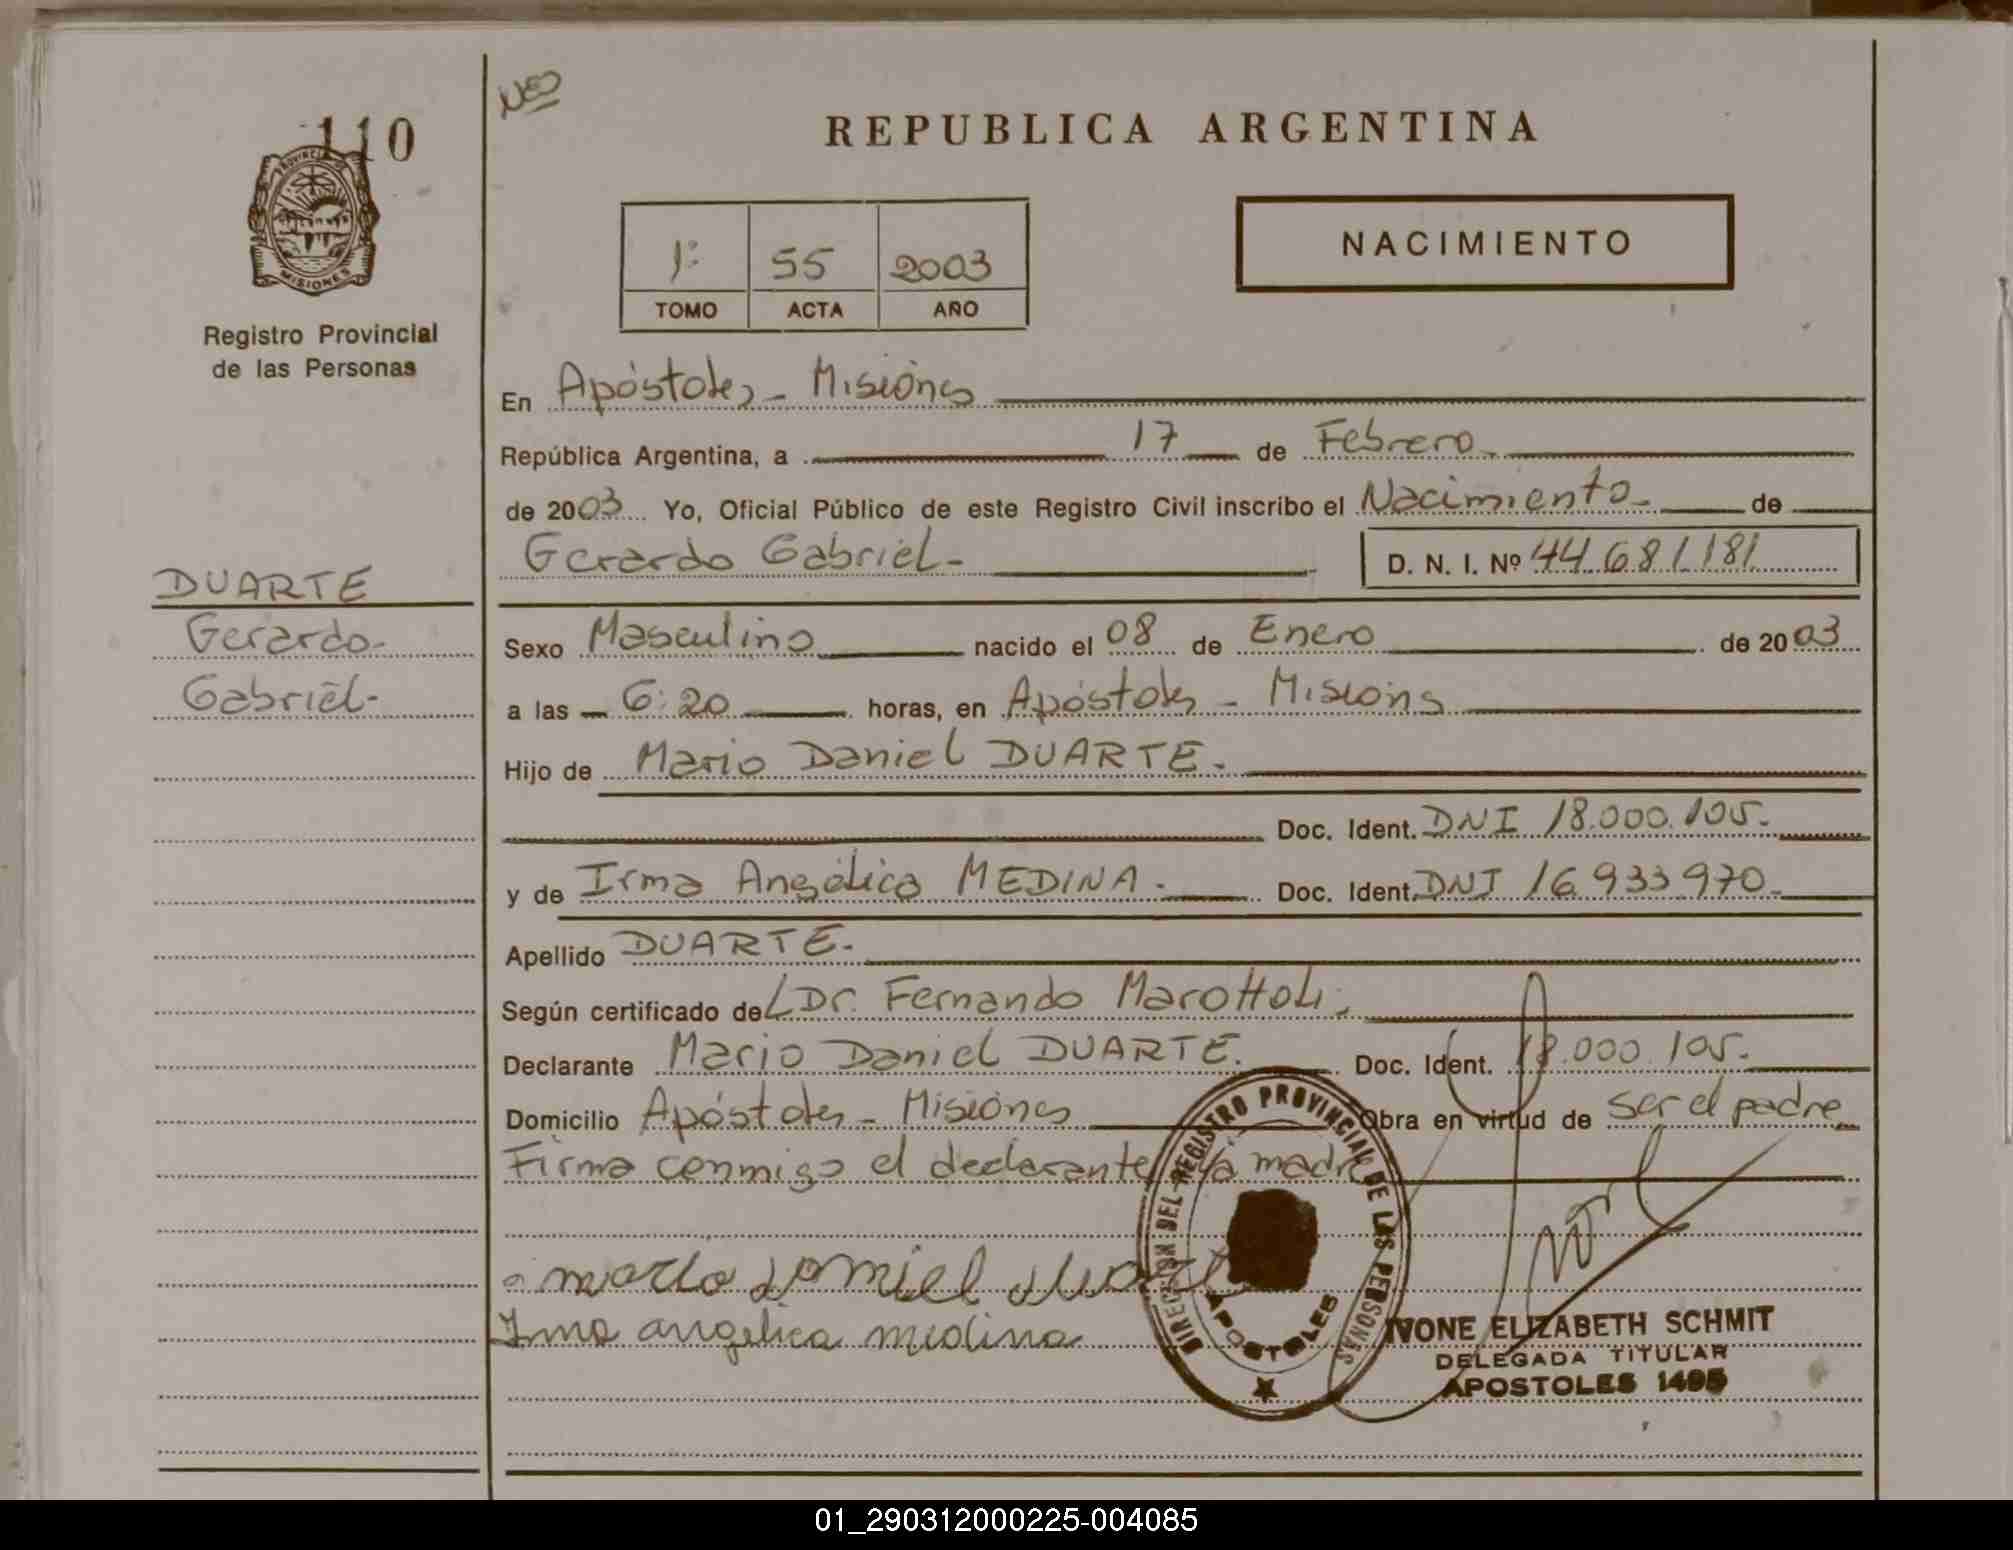 NEO
110
REPUBLICA ARGENTINA
PROVINCIA DE
MISIONES
1º 55 2003
TOMO ACTA AÑO
NACIMIENTO
Registro Provincial
de las Personas
En Apóstoles - Misiones
República Argentina, a 17 de Febrero
de 2003 Yo, Oficial Público de este Registro Civil inscribo el Nacimiento de
Gerardo Gabriel - D. N. I. Nº 44.681.181
DUARTE
Gerardo -
Gabriel -
Sexo Masculino nacido el 08 de Enero de 2003
a las 6:20 horas, en Apóstoles - Misiones
Hijo de Mario Daniel DUARTE.
Doc. Ident. DNI 18.000.105.
y de Irma Angélica MEDINA. Doc. Ident. DNI 16.933.970.
Apellido DUARTE.
Según certificado de Dr. Fernando Marottoli.
Declarante Mario Daniel DUARTE. Doc. Ident. 18.000.105.
Domicilio Apóstoles - Misiones Obra en virtud de ser el padre
Firma conmigo el declarante y la madre
mario daniel duarte
Irma angelica medina
DIRECCION DEL REGISTRO PROVINCIAL DE LAS PERSONAS
APOSTOLES
IVONE ELIZABETH SCHMIT
DELEGADA TITULAR
APOSTOLES 1495
01_290312000225-004085